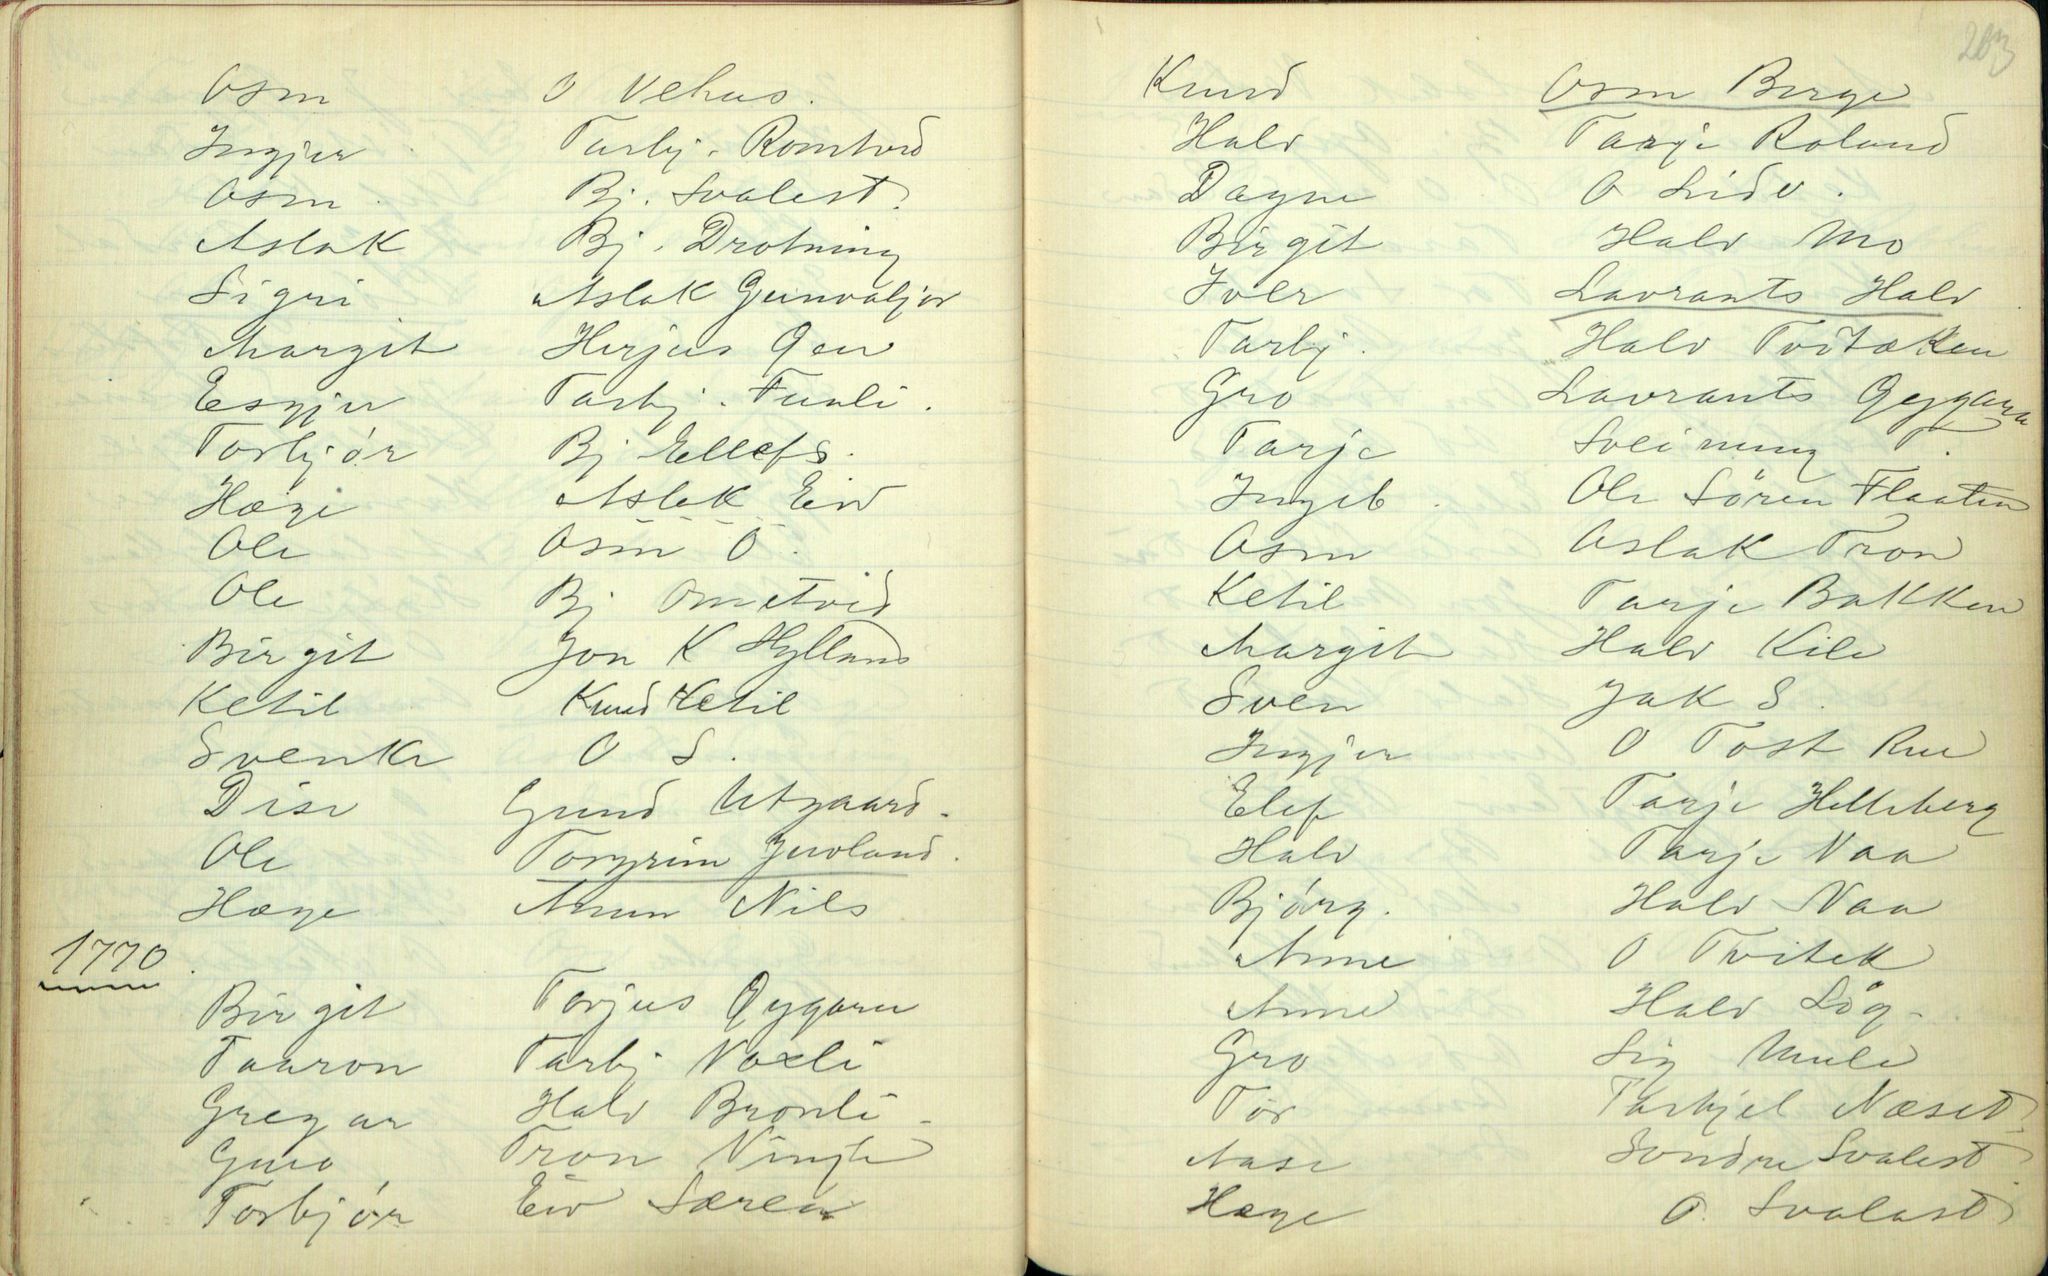 Osm O Vehus.
Ingjer Tarbj. Romtved
Osm Bj. Svalest.
Aslak Bj. Drotning
Sigri Aslak Gunvaljor
Margit Herjus
Tarbj.
Torbjør Bj Ellefs.
Hæge Aslak Eiv
Ole Osm O.
Ole Bj Omtvid
Birgit Jon K Hylland
Ketil Knud Ketil
Svenke O S.
Dise Gund Utgaard.
Ole Torgrim Juvland.
Hæge Amun Nils
1770
Birgit Torjus Øygaren
Taaron Tarbj Vaxli
Gregar Halv Bronli
Guro Tron
Torbjør Eiv Særen
203
Knud Osm Berge
Halv Tarje Roland
Dagne O Lide.
Birgit Halv Mo
Iver Lavrants Halv
Tarbj. Halv Tvitæken
Gro Lavrants Øygaren
Tarje Sveinung T.
Ingeb Ole Sören Flaaten
Osm Aslak Tron
Ketil Tarje Bakken
Margit Halv Kile
Sven Jak S.
Ingjer O Tost Rue
Elef Tarje Helleberg
Halv Tarje Naa
Bjørg. Halv Naa
Anne O Tvitek
Anne Halv Lög.
Gro Sig Mule
Tor Tarkjel Næset
Aase Sondre Svalest
Hæge O. Svalast